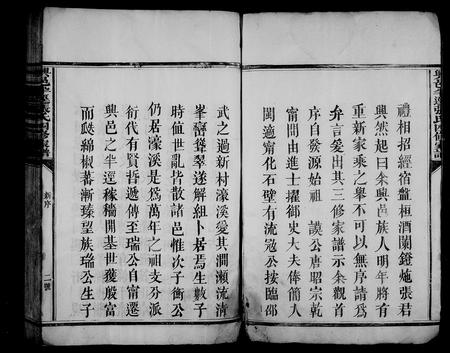 禮相招經宿盤桓酒闌鐙灺張君
興然起曰余興邑族人明年將有
重新家乘之舉不可以無序請爲
弁言爰出其三修家譜示余觀首
序自發源始祖 謨公唐昭宗乾
甯間由進士擢御史大夫偉節人
閩適甯化石壁有流寇公按臨邵
武之過新村濠溪愛其澗瀨流清
峯巒聳翠遂解組卜居焉生數子
時値世亂皆散諸邑惟次子衡公
仍居濠溪是爲萬年之祖支分派
衍代有賢哲遞傳至瑞公自甯遷
興邑之半逕稼穡開基世獲殷富
而瓞綿椒蕃漸臻望族瑞公生子
新序
二號